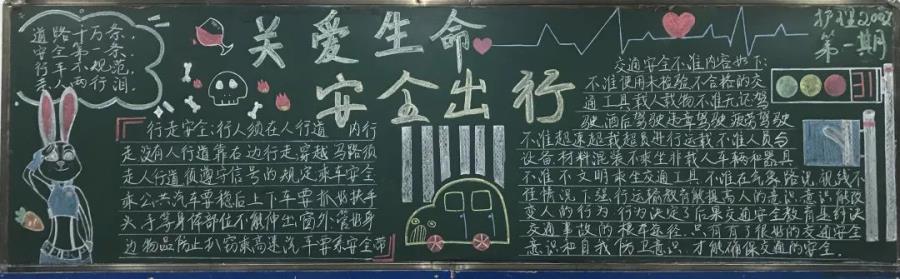 道路千万条,
安全第一条,
行车不规范,
亲人两行泪。
关爱生命
安全出行
护理2002
第一期
31
行走安全:行人须在人行道 内行
走没有人行道靠右边行走,穿越马路须
走人行道须遵守信号的规定乘车安全
乘公共汽车要稳后上下车要抓好扶手
头手等身体部位不能伸出窗外管好身
边物品防止扒窃乘高速汽车要系安全带
交通安全不准内容如下:
不准使用未检验不合格的交
通工具载人载物不准无证驾
驶,酒后驾驶违章驾驶疲劳驾驶
不准超速超载超员进行运载不准人员与
设备材料混装不乘坐非载人车辆和器具
不准不文明乘坐交通工具不准在气象路况视线不
佳情况下强行运输教育能提高人的意识意识能改
变人的行为行为决定了后果交通安全教育是解决
交通事故的根本途径只有有了很好的交通安全
意识和自我防卫意识才能确保交通的安全